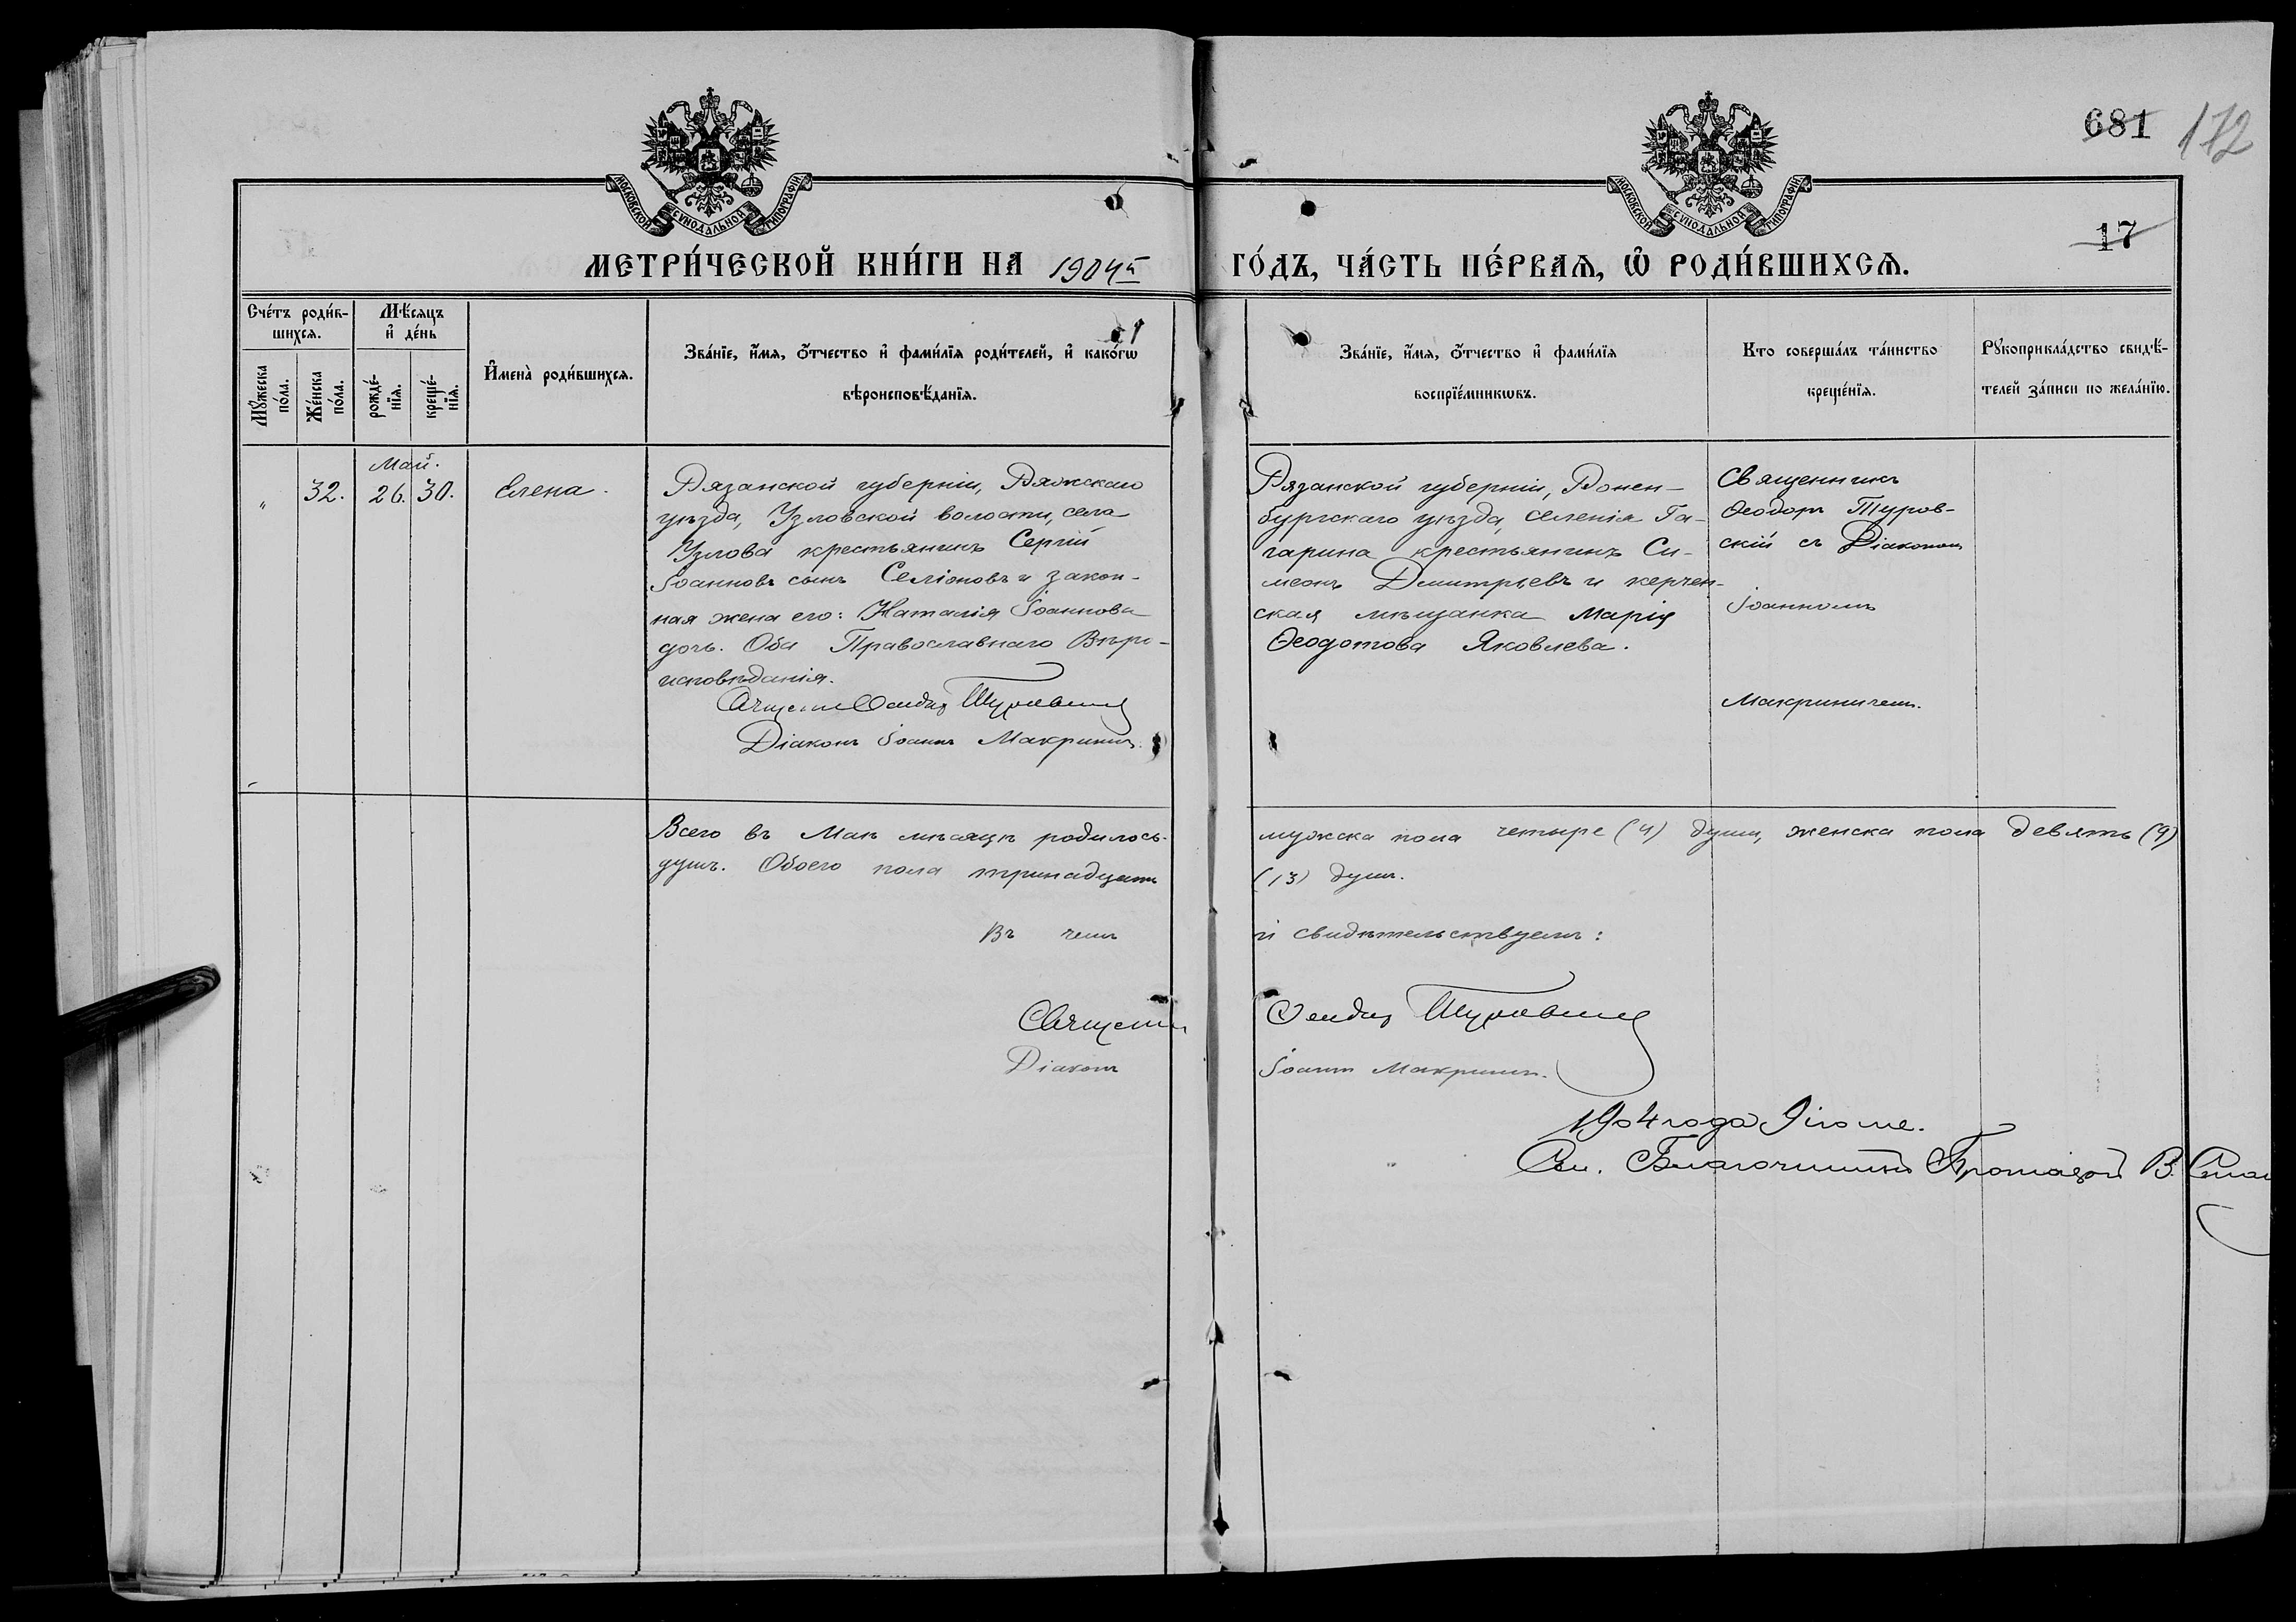 681 172
МОСКОВСКОЙ СѴНОДАЛЬНОЙ ТИПОГРАФІИ.
МОСКОВСКОЙ СѴНОДАЛЬНОЙ ТИПОГРАФІИ.
17
МЕТРИ́ЧЕСКОЙ КНИ́ГИ НА 1904й ГО́ДЪ, ЧА́СТЬ ПЕ́РВАѦ, Ѡ҆ РОДИ́ВШИХСѦ.
Сче́тъ роди́в-
шихсѧ.
Мꙋ́жеска
по́ла.
Же́нска
по́ла.
Мѣ́сѧцъ
и҆ де́нь
рожде́-
нїѧ.
креще́-
нїѧ.
И҆мена̀ роди́вшихсѧ.
Зва́нїе, и҆́мѧ, ѻ҆́тчество и҆ фами́лїѧ роди́телей, и҆ како́гѡ
вѣроисповѣ́данїѧ.
Зва́нїе, и҆́мѧ, ѻ҆́тчество и҆ фами́лїѧ
воспрїе́мникѡвъ.
Кто соверша́лъ та́инство
креще́нїѧ.
Рꙋкоприкла́дство свидѣ́-
телей за́писи по жела́нїю.
Май.
" 32. 26. 30. Елена.
Рязанской губерніи, Ряжскаго
уѣзда, Узловской волости, села
Узлова крестьянинъ Сергій
Іоанновъ сынъ Селіоновъ и закон-
ная жена его: Наталія Іоаннова
дочь. Оба Православнаго Вѣро-
исповѣданія.
Діаконъ Іоаннъ Макринич.
Рязанской губерніи, Ронен-
бургскаго уѣзда, селенія Га-
гарина крестьянинъ Си-
меонъ Дмитріевъ и керчен-
ская мѣщанка Марія
Ѳеодотова Яковлева.
Священникъ
Ѳеодоръ Туров-
скій съ Діакономъ
Іоанномъ
Макриничемъ.
Всего въ Маѣ мѣсяцѣ родилось мужска пола четыре (4) души, женска пола девять (9)
душъ. Обоего пола тринадцать (13) душъ.
Въ чемъ и свидѣтельствуемъ:
Діаконъ Іоаннъ Макринич.
1904 года
Благочинный Протоіерей В.